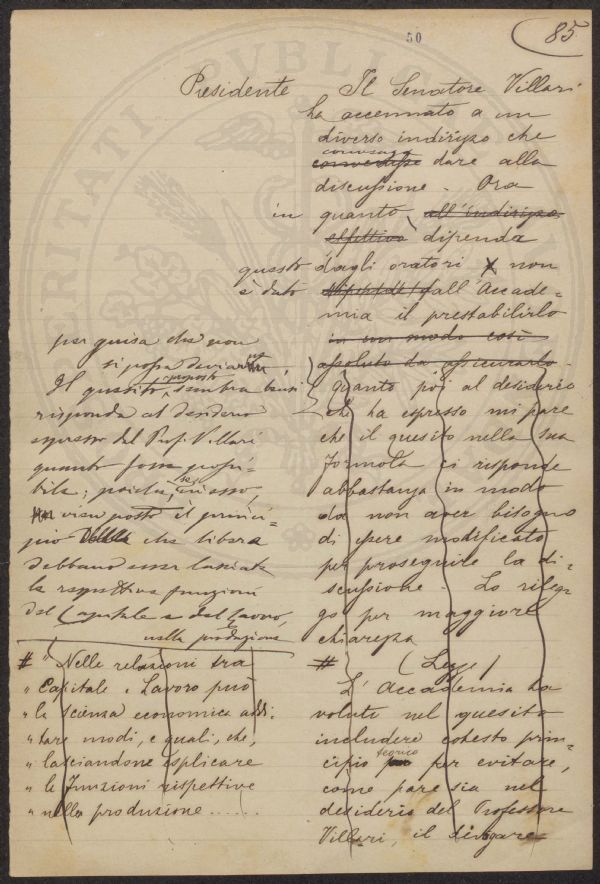 85
50
Presidente Il Senatore Villari
ha accennato a un
diverso indirizzo che
convenisse
dare alla
discussione - Ora
in quanto all'indirizzo
effettivo dipenda
questo dagli oratori X non
è dato dall'Accade-
mia il prestabilirlo
in un modo così
assoluto da assicurarlo -
quanto poi al desiderio
che ha espresso mi pare
che il quesito nella sua
formola ci risponde
abbastanza in modo
da non aver bisogno
di essere modificato
per proseguire la di-
scussione - Lo rileg-
go per maggiore
chiarezza
# (Legge)
L'Accademia ha
voluto nel quesito
includere cotesto prin-
teorico
cipio per evitare,
come pare sia nel
desiderio del Professore
Villari, il divagare
per guisa che non
si possa deviar
proposto
Il quesito, sembra bensì
risponda al desiderio
espresso dal Prof. Villari
quanto fosse possi-
bile; poichè, in esso,
vien posto il princi-
pio che libera
debbano esser lasciate
le respettive funzioni
del Capitale e del Lavoro,
nella produzione
# " Nelle relazioni tra
" Capitale e Lavoro può
" la scienza economica addi-
" tare modi, e quali, che,
" lasciandone esplicare
" le funzioni rispettive
" nella produzione .......